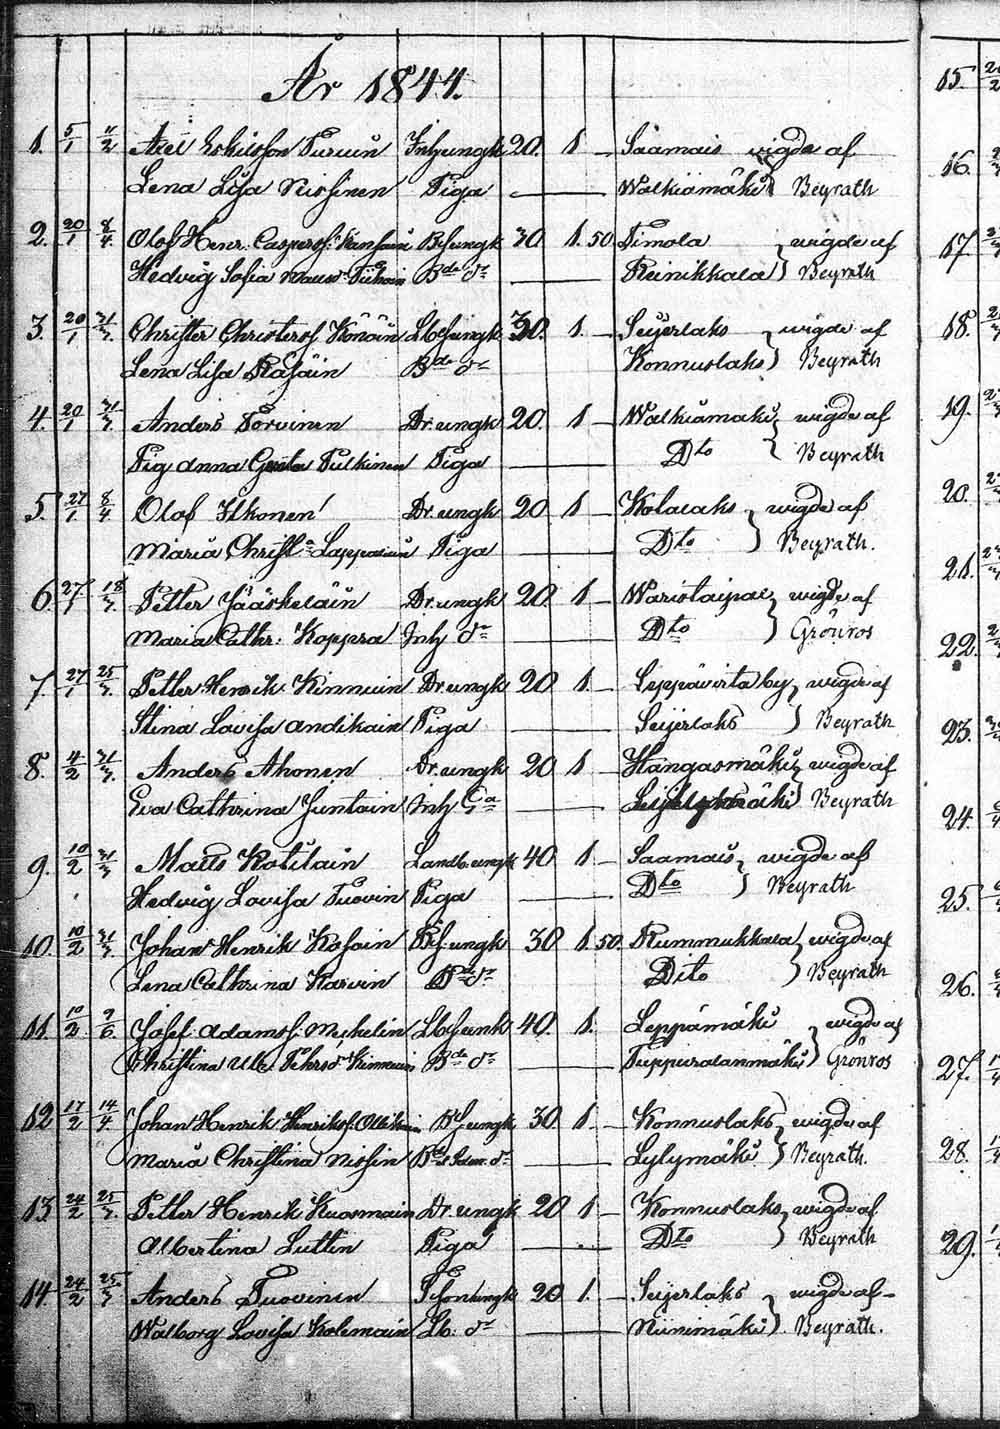 År 1844.
1. 5/1 11/2 Axel Eskilsson Turuin Inh.ungk 20. 1 Saamais wigde af
Lena Lisa Nissinen Piga Walkiamäki Beyrath
2. 20/1 8/4 Olof Henr. Caspersf. Bf.ungk 30 1. 50. Timola wigde af
Hedvig Sofia Bde dr Reinikkala Beyrath
3. 20/1 31/3 Christer Christersf. Könöin Lbf.ungk 30. 1. Seijerlaks wigde af
Lena Lisa Räsäin Bde dr Konnuslaks Beyrath
4. 20/1 31/3 Anders Torvinen Dr.ungk 20 1 Walkiamäki wigde af
Pig Anna Greta Pulkinen Piga Dto Beyrath
5. 27/1 8/4 Olof Ilkonen Dr.ungk 20 1 Kolalaks wigde af
Maria Christa Lappalain Piga Dto Beyrath.
6 27/1 18/3 Petter Jääskeläin Dr.ungk 20 1 Waristaipal wigde af
Maria Cathr. Koppra Inh dr Dto Grönros
7. 27/1 25/3 Petter Henrik Kinnuin Dr.ungk 20 1. Leppävirta by wigde af
Stina Lovisa Andikain Piga Seijerlaks Beyrath
8. 4/2 31/3 Anders Ahonen Dr.ungk 20 1 Hangasmäki wigde af
Eva Cathrina Juntain Inh Beyrath
9. 10/2 31/3 Matts Kotilain Landb.ungk 40 1. Saamais wigde af
Hedvig Lovisa Tuovin Piga Dto Beyrath
10. 10/2 31/3 Johan Henrik Kosoin Bf.ungk 30 1. 50. Rummukkala wigde af
Lena Cathrina Karvin Bde dr Dito Beyrath
11. 10/2 9/6 Josef Adamsf. Michelin Lbf.unk 40. 1. Leppämäki wigde af
Christina Ulr. Pehrsd. Kinnuin Bde dr Tuppuralanmäki Grönros
12 17/2 14/4 Johan Henrik Henriksf. Bf.ungk 30 1. Konnuslaks wigde af
Maria Christina Nissin dr Lylymäki Beyrath.
13 24/2 25/3 Petter Henrik Kuosmain Dr.ungk 20 1 Konnuslaks wigde af
Albertina Luttin Piga Dto Beyrath
14. 24/2 25/3 Anders Tuovinen 20 1. Seijerlaks wigde af
Walborg Lovisa Kolemain Lb. dr Niinimäki Beyrath.
15.
16.
17.
18.
19.
20.
21.
22.
23.
24.
25.
26.
27.
28.
29.